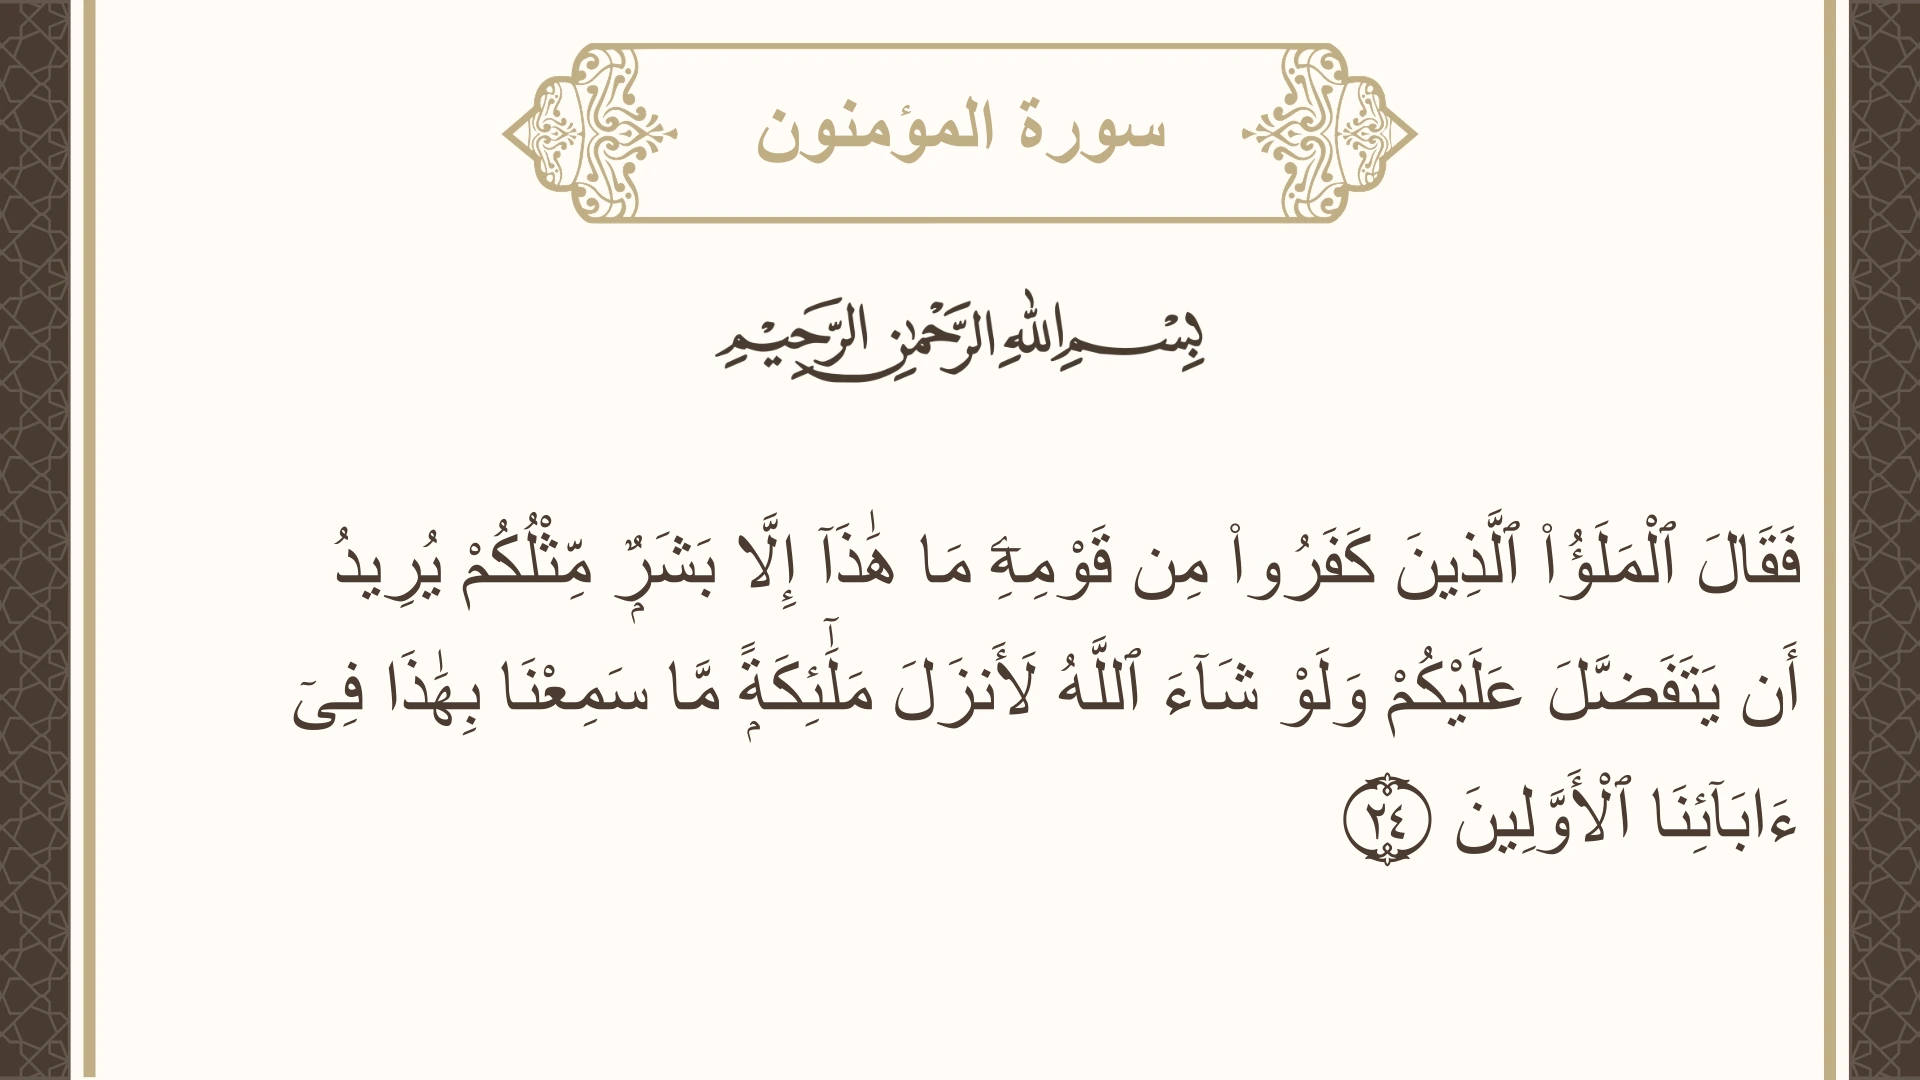 سورة المؤمنون
بِسْمِ اللهِ الرَّحْمٰنِ الرَّحِيْمِ
فَقَالَ ٱلْمَلَؤُا۟ ٱلَّذِينَ كَفَرُوا۟ مِن قَوْمِهِۦ مَا هَٰذَآ إِلَّا بَشَرٌۭ مِّثْلُكُمْ يُرِيدُ
أَن يَتَفَضَّلَ عَلَيْكُمْ وَلَوْ شَآءَ ٱللَّهُ لَأَنزَلَ مَلَٰٓئِكَةًۭ مَّا سَمِعْنَا بِهَٰذَا فِىٓ
ءَابَآئِنَا ٱلْأَوَّلِينَ ٢٤